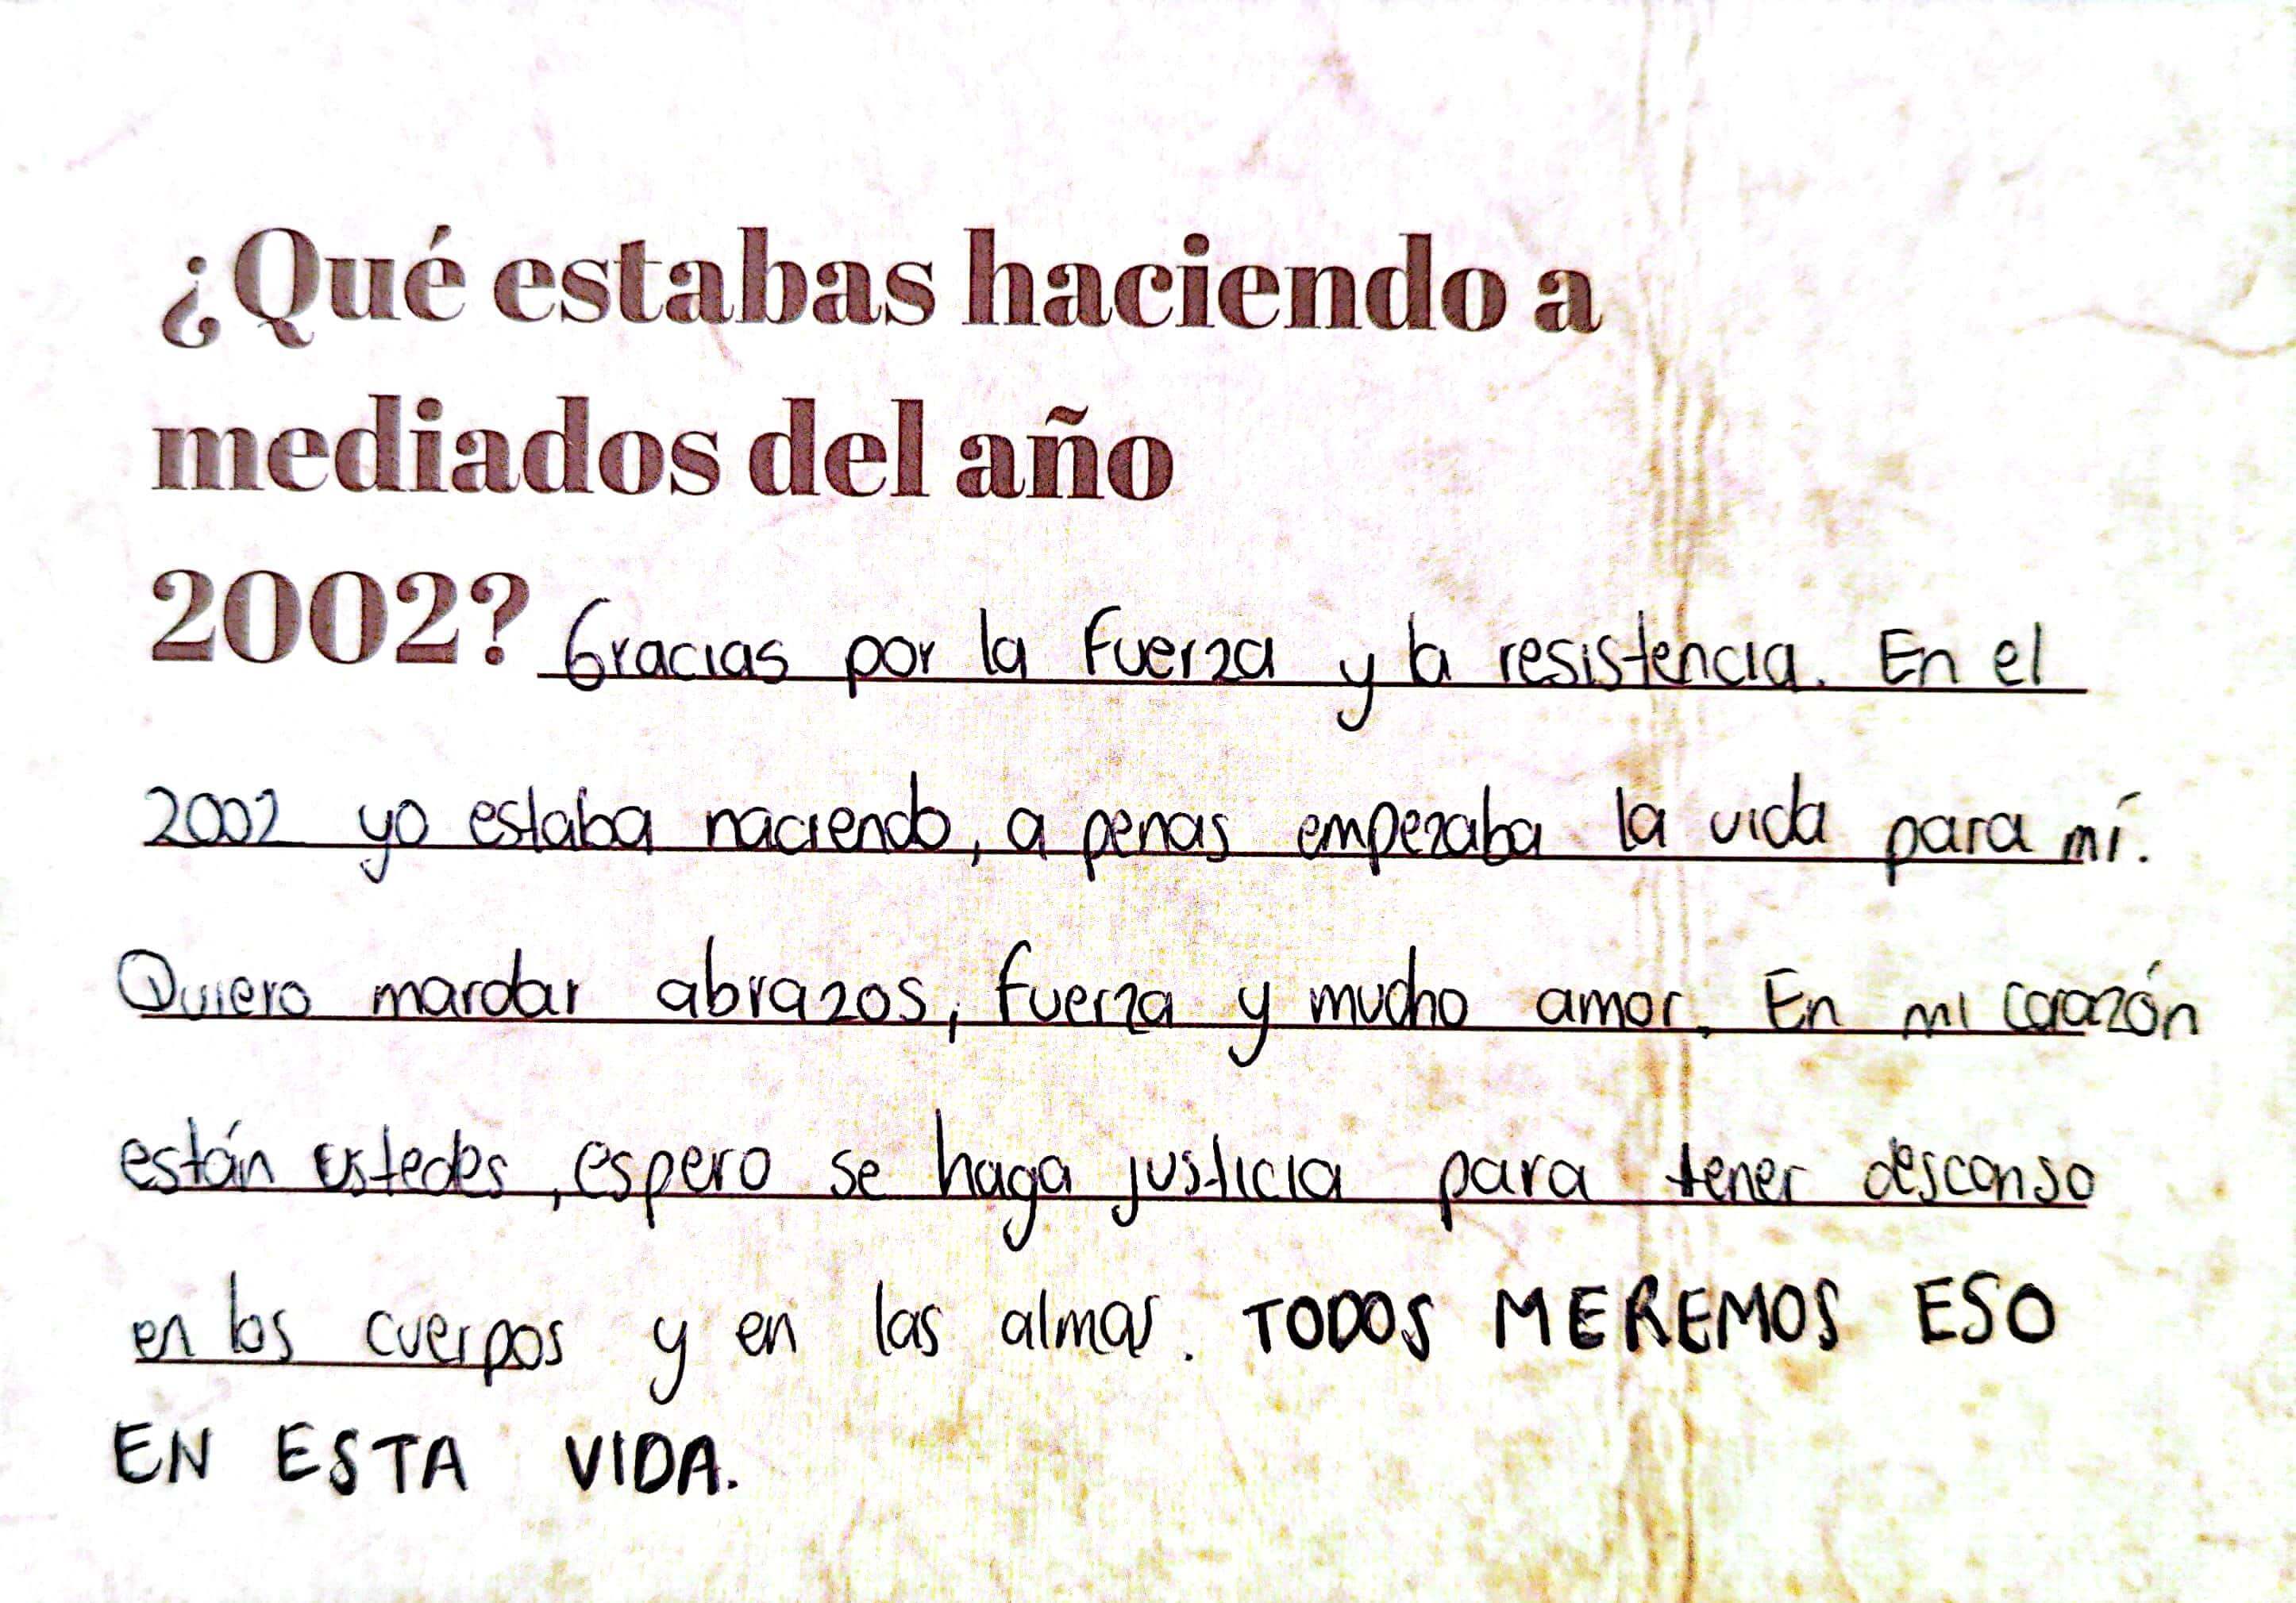 ¿Qué estabas haciendo a
mediados del año
2002? Gracias por la fuerza y la resistencia. En el
2002 yo estaba naciendo, a penas empezaba la vida para mí.
Quiero mandar abrazos, fuerza y mucho amor. En mi corazón
están ustedes, espero se haga justicia para tener descanso
en los cuerpos y en las almas. TODOS MEREMOS ESO
EN ESTA VIDA.